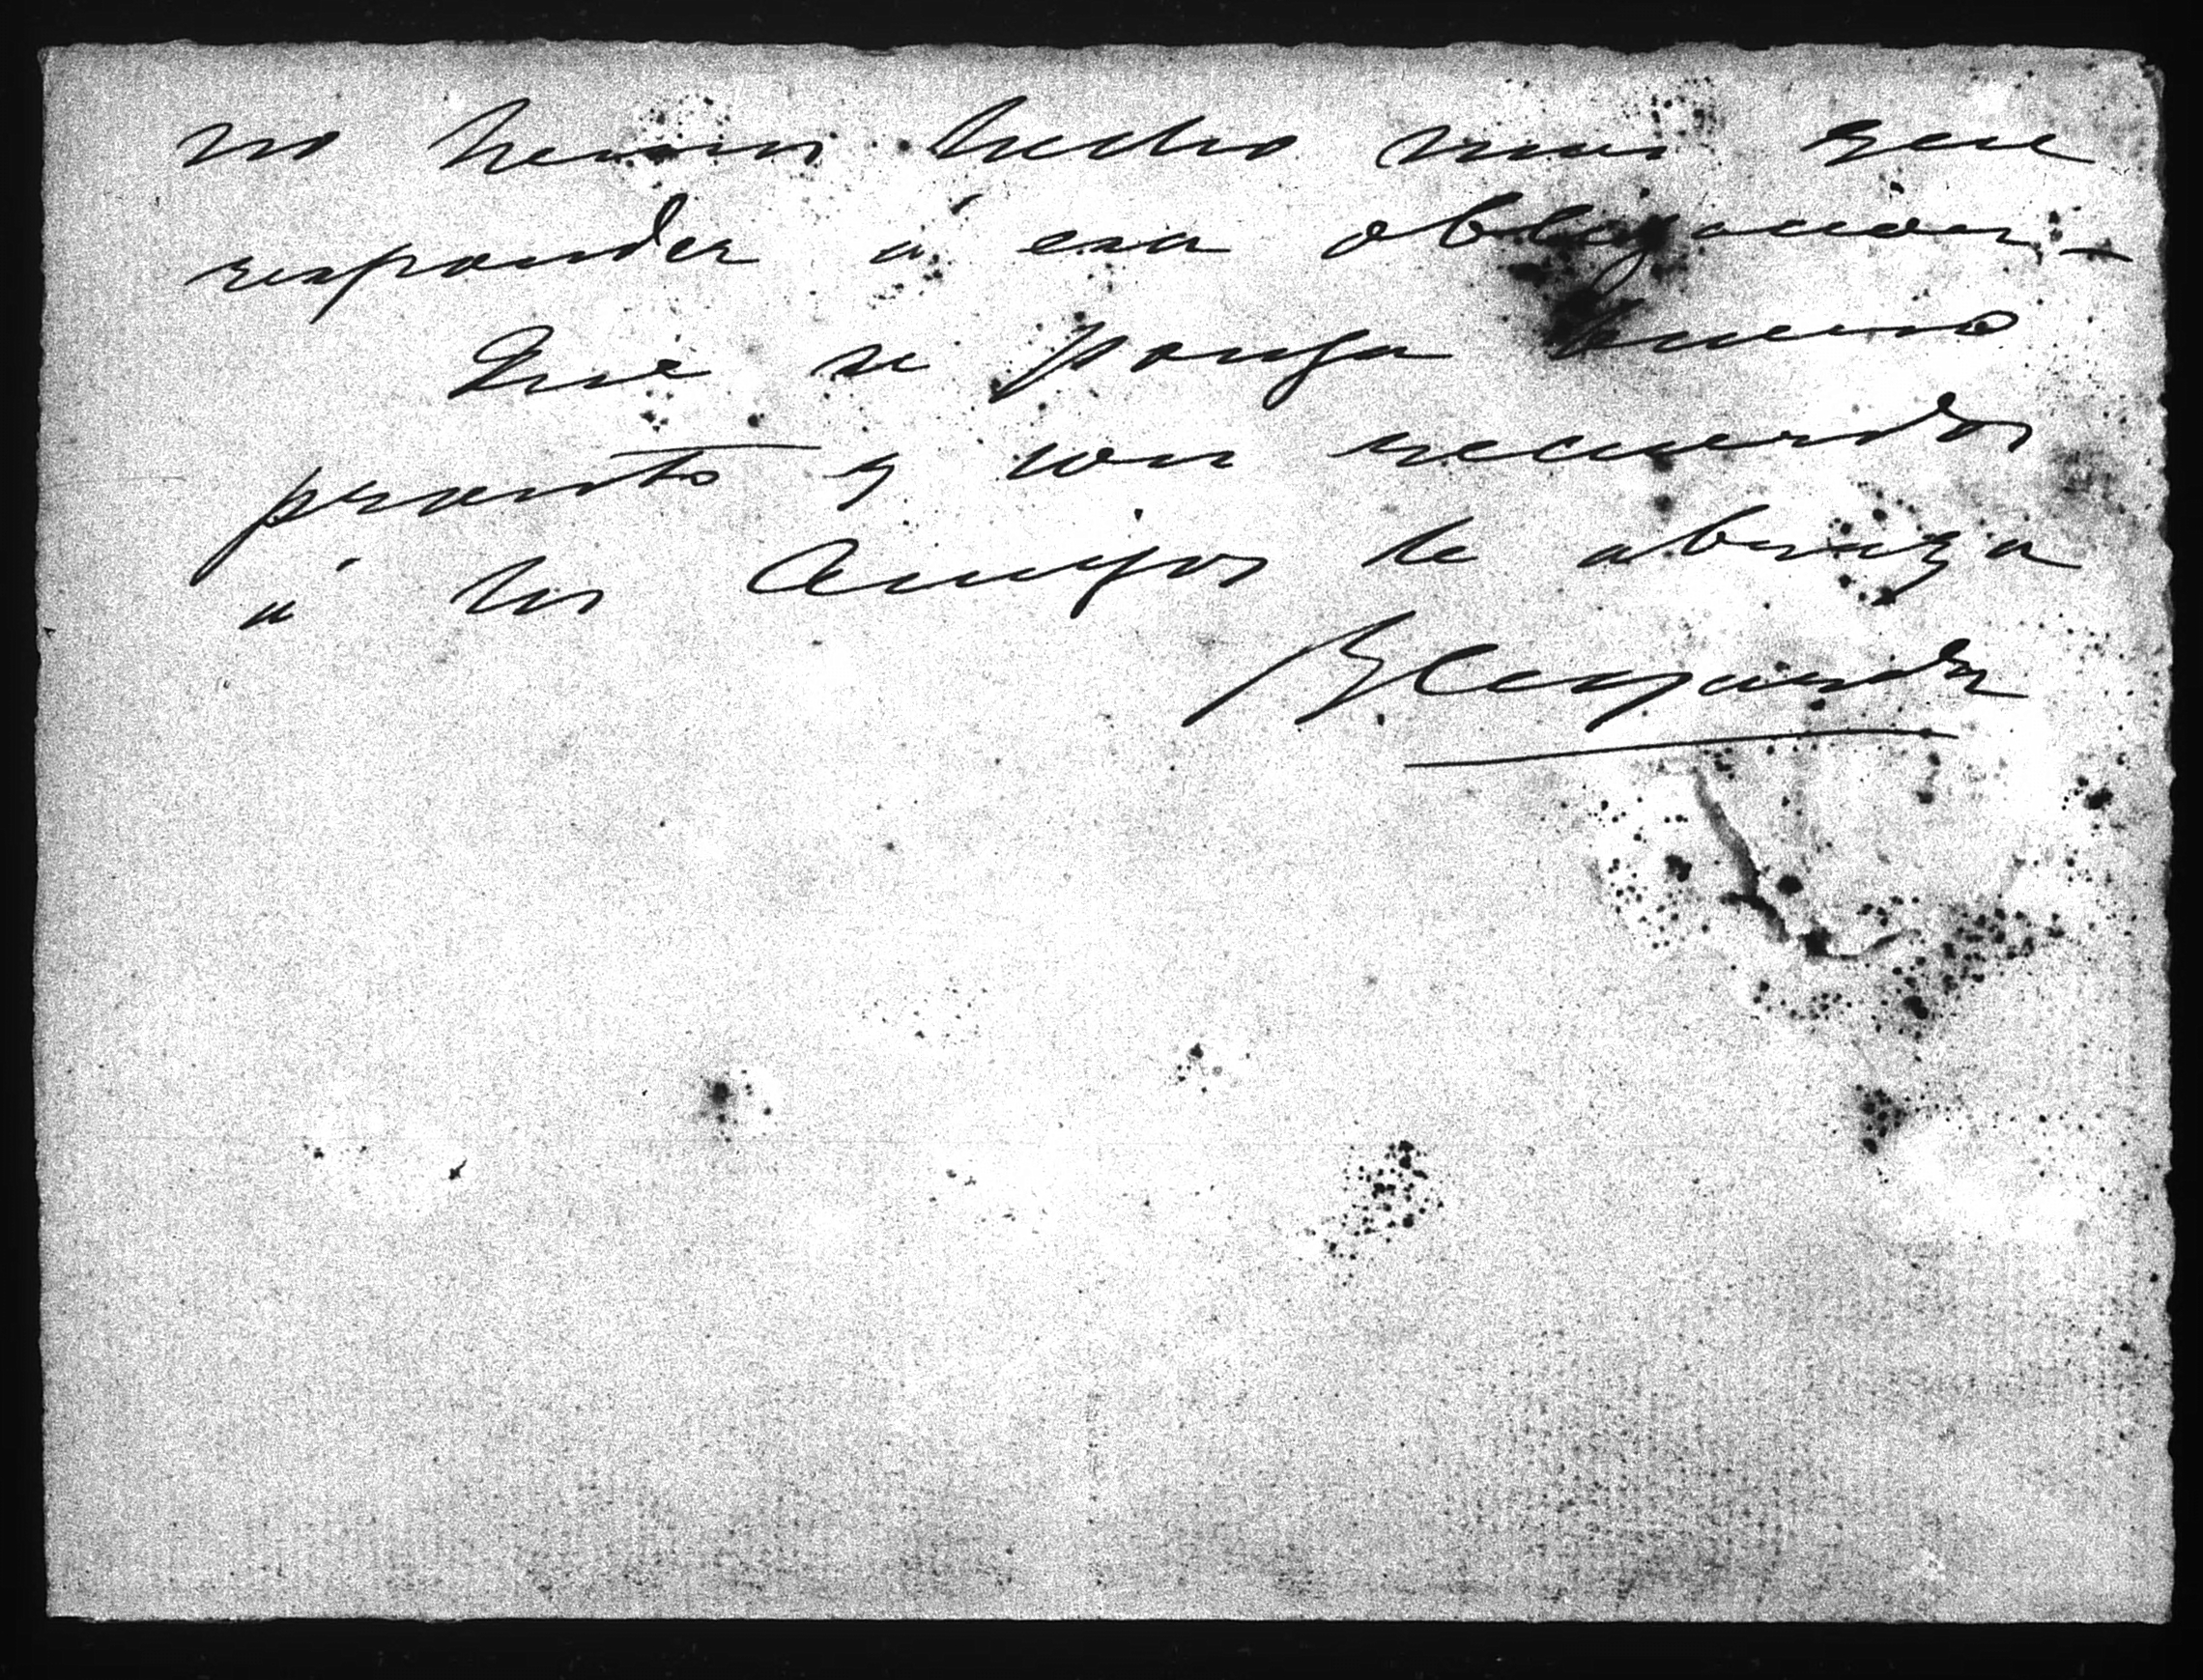 no hemos hecho mas que
responder á esa obligacion.—
Que se ponga bueno
pronto y con recuerdos
á los Amigos le abraza